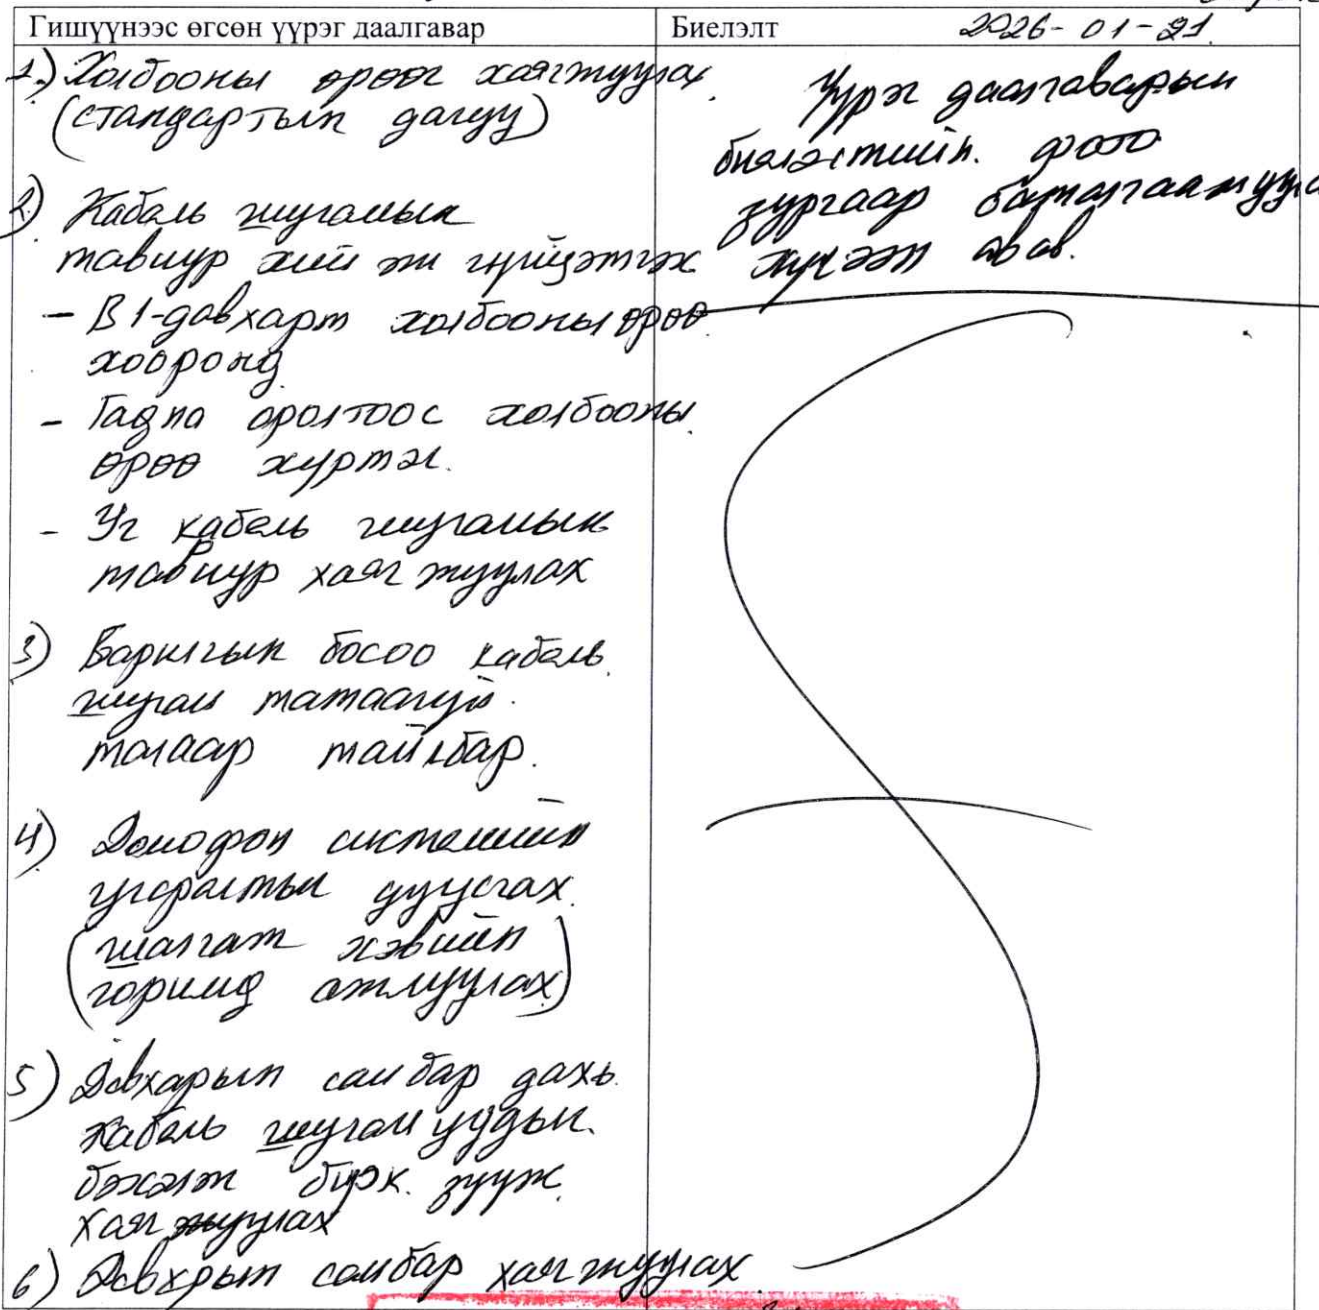 Гишүүнээс өгсөн үүрэг даалгавар
1.) Холбооны өрөөг хаягжуулах.
(стандартын дагуу)
2.) Кабель шугамын
тавиур хийж гүйцэтгэх
- B1-давхарт холбооны өрөө
хооронд
- Гадна оролтоос холбооны
өрөө хүртэл.
- Уг кабель шугамын
тавиур хаягжуулах
3) Барилгын босоо кабель
шугам татаагүй
талаар тайлбар.
4) Домофон системийн
угсралтын дуусгах.
(шалгаж хэвийн
горимд ажлуулах)
5) Давхарын самбар дахь
кабель шугамуудын
бэхэлж бирк зүүж
хаягжуулах
6) Давхрын самбар хаягжуулах
Биелэлт 2026-01-21.
Үүрэг даалгаварын
биелэлтийн. фото
зургаар баталгаажуулж
хүлээж авав.